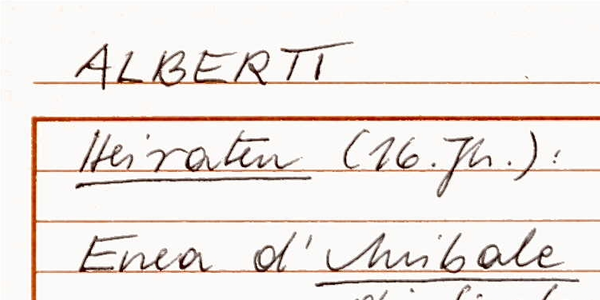 ALBERTI
Heiraten (16. Jh.):
Enea d'Annibale